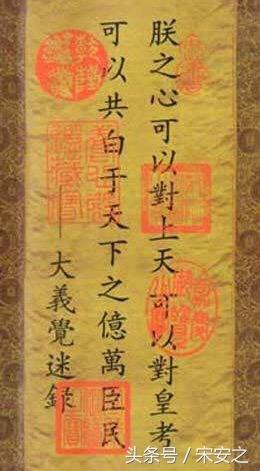 朕之心可以對上天可以對皇考
可以共白于天下之億萬臣民
——大義覺迷錄
头条号／宋安之